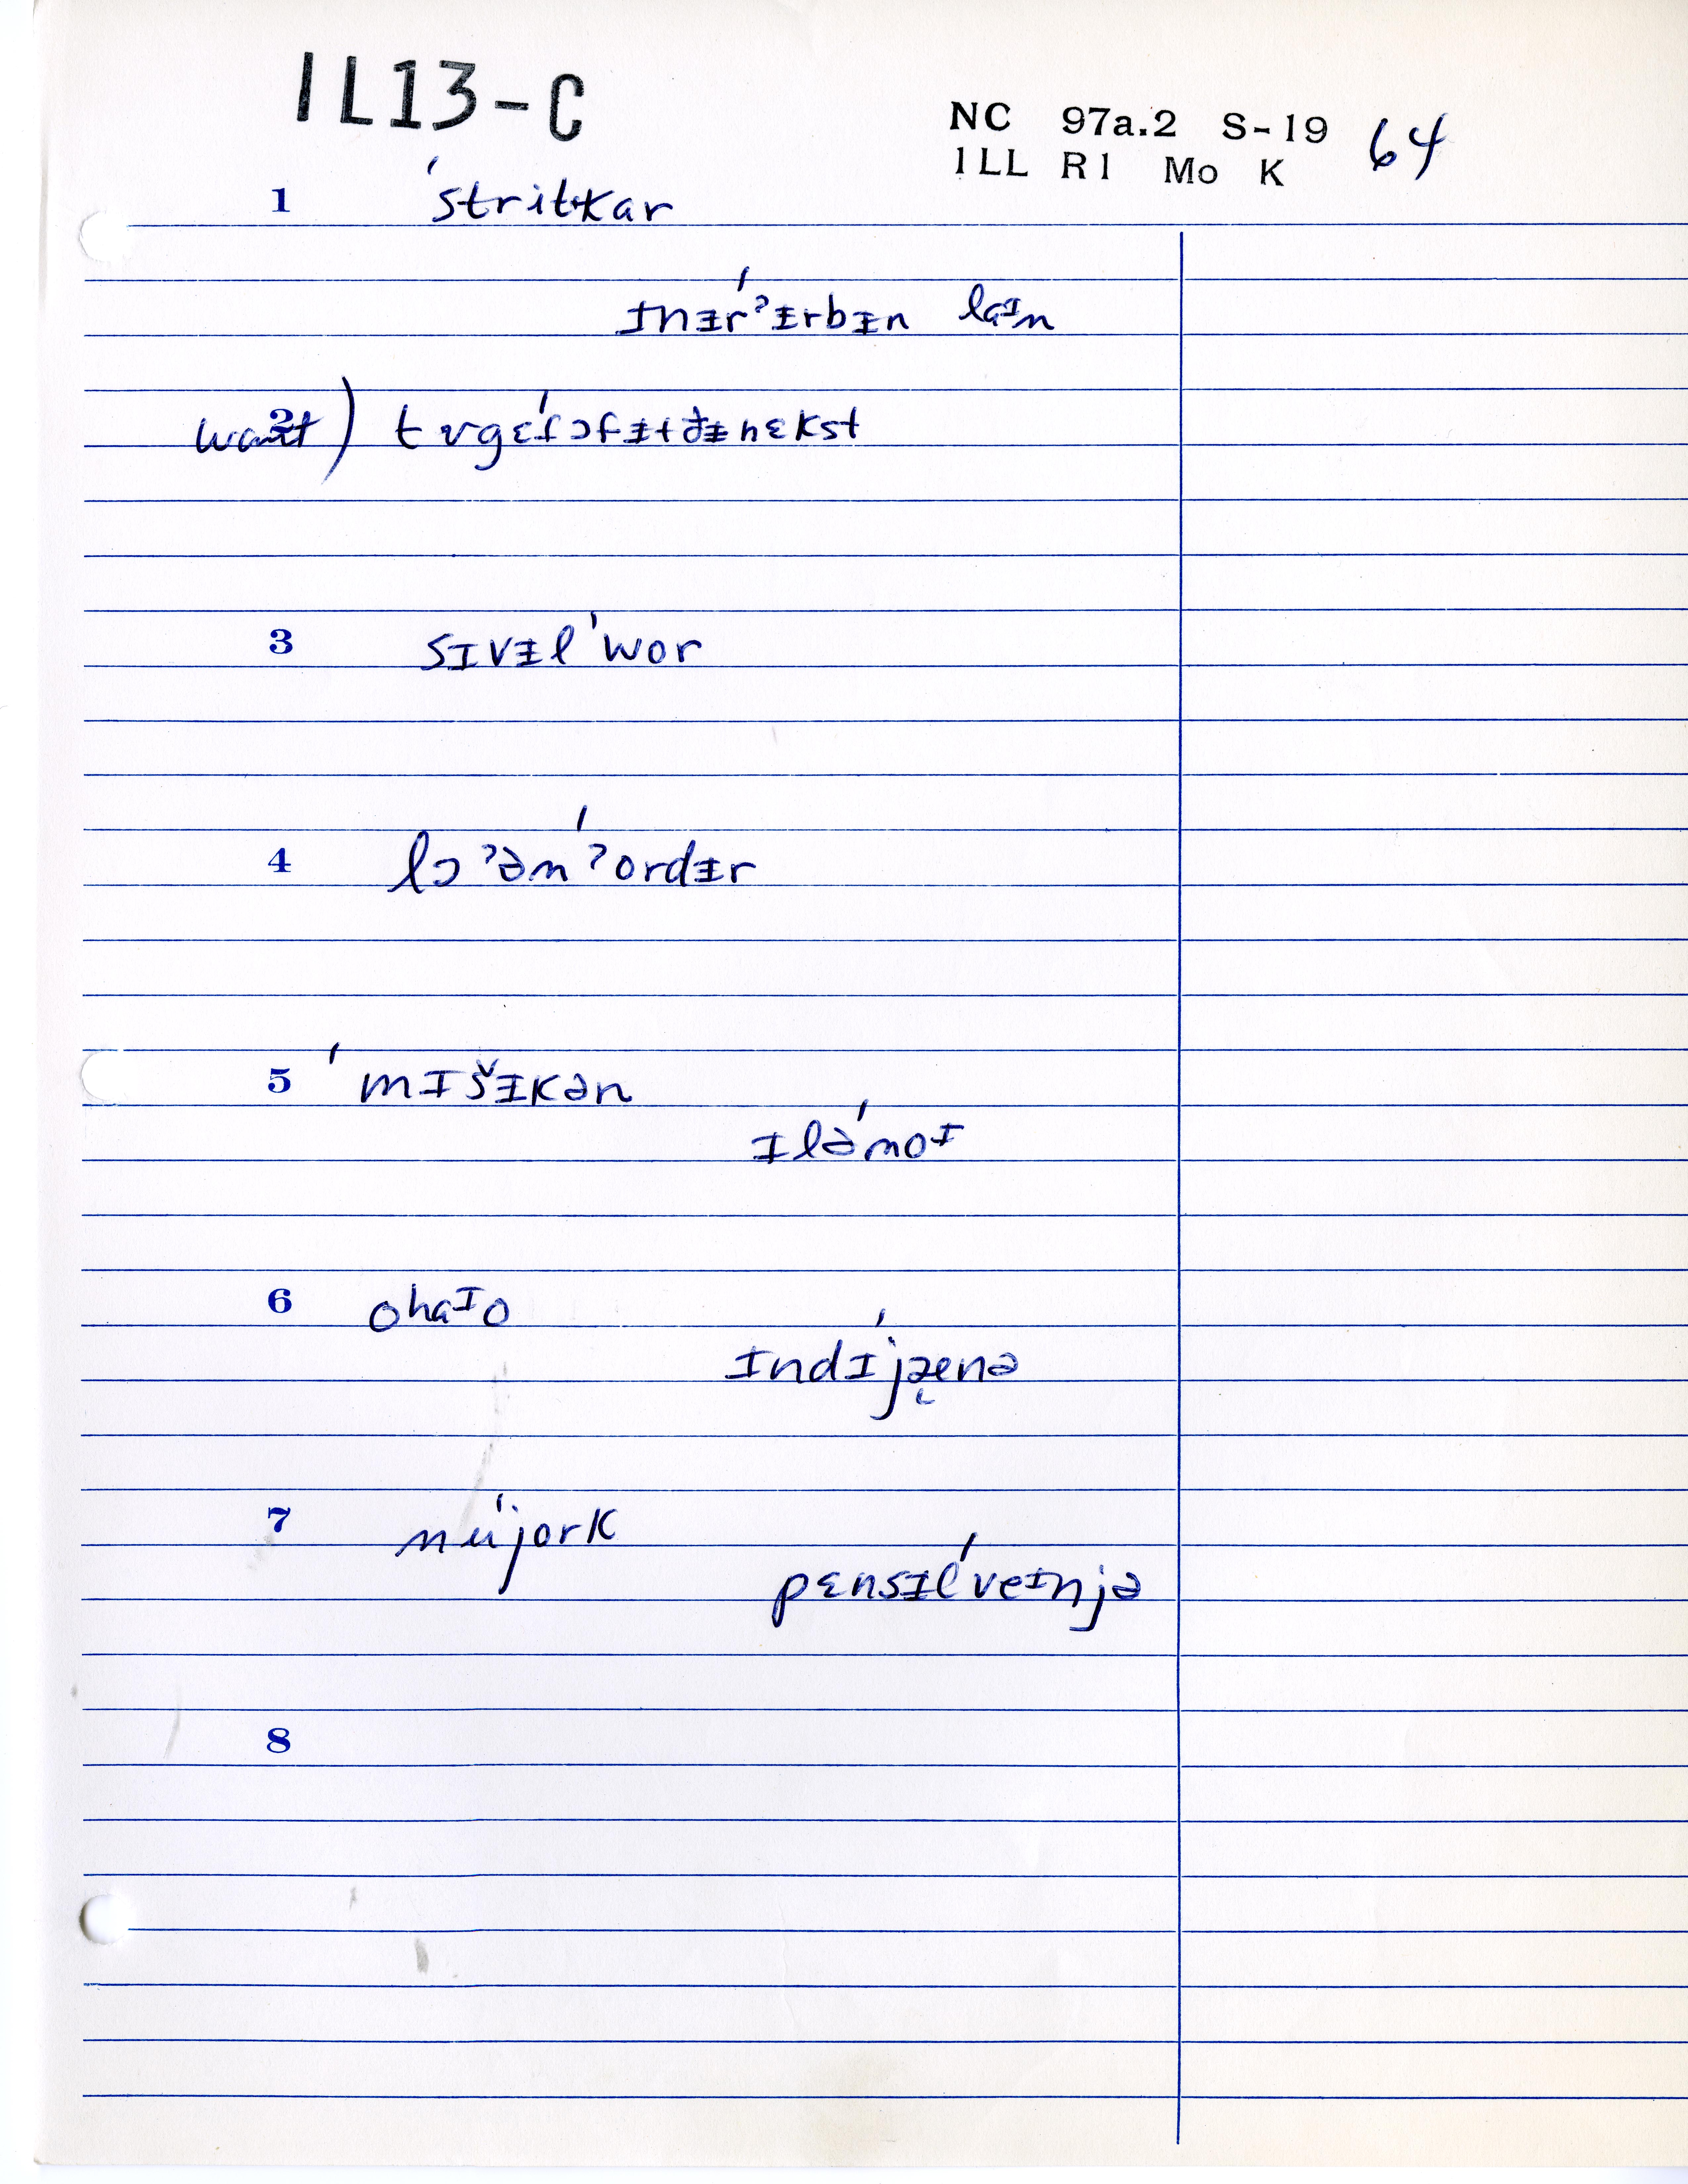 IL13-C
NC 97a.2 S-19 64
ILL R1 Mo K
1 ˈstritkar
ɪnɨrˈʔɨrbɨn laɪn
2 want) tʊgɛˈfɔfɨtðɨnɛkst
3 sɪvɨlˈwor
4 lɔʔənˈʔordɨr
5 ˈmɪšɨkən
ɪləˈnoɪ
6 ohaɪo
ɪndɪˈjænə
7 nuˈjork
pɛnsɨlˈveɪnjə
8